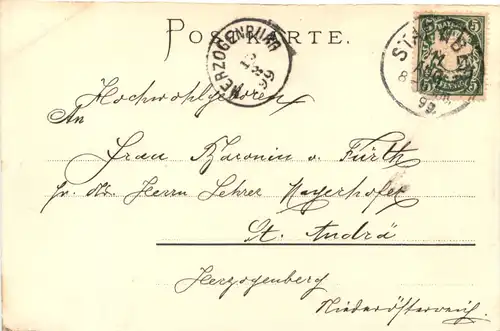 POSTKARTE.
HERZOGENBURG
99
5 BAYERN 5
99.
Hochwohlgeboren
An
Frau Baronin v. Fürth
Herrn Lehrer Mayerhofer
St. Andrä
Herzogenberg
Niederösterreich